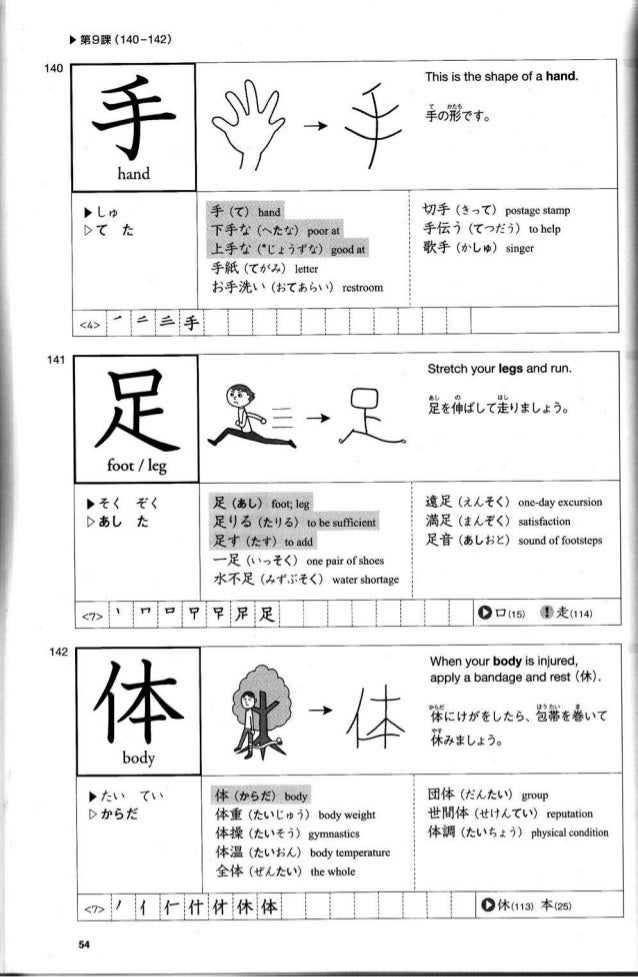 ▶ 第9課 (140－142)
140
手
hand
This is the shape of a hand.
て かたち
手の形です。
▶しゅ
▷て た
手（て） hand
下手な（へたな） poor at
上手な（*じょうずな） good at
手紙（てがみ） letter
お手洗い（おてあらい） restroom
切手（きって） postage stamp
手伝う（てつだう） to help
歌手（かしゅ） singer
<4> 手
141
足
foot / leg
Stretch your legs and run.
あし の はし
足を伸ばして走りましょう。
▶そく ぞく
▷あし た
足（あし） foot; leg
足りる（たりる） to be sufficient
足す（たす） to add
一足（いっそく） one pair of shoes
水不足（みずぶそく） water shortage
遠足（えんそく） one-day excursion
満足（まんぞく） satisfaction
足音（あしおと） sound of footsteps
<7> 足
▶口(15) ! 走(114)
142
体
body
When your body is injured,
apply a bandage and rest (休).
からだ ほうたい ま
体にけがをしたら、包帯を巻いて
やす
休みましょう。
▶たい てい
▷からだ
体（からだ） body
体重（たいじゅう） body weight
体操（たいそう） gymnastics
体温（たいおん） body temperature
全体（ぜんたい） the whole
団体（だんたい） group
世間体（せけんてい） reputation
体調（たいちょう） physical condition
<7> ノ イ 仁 什 休 体
▶休(113) 本(25)
54